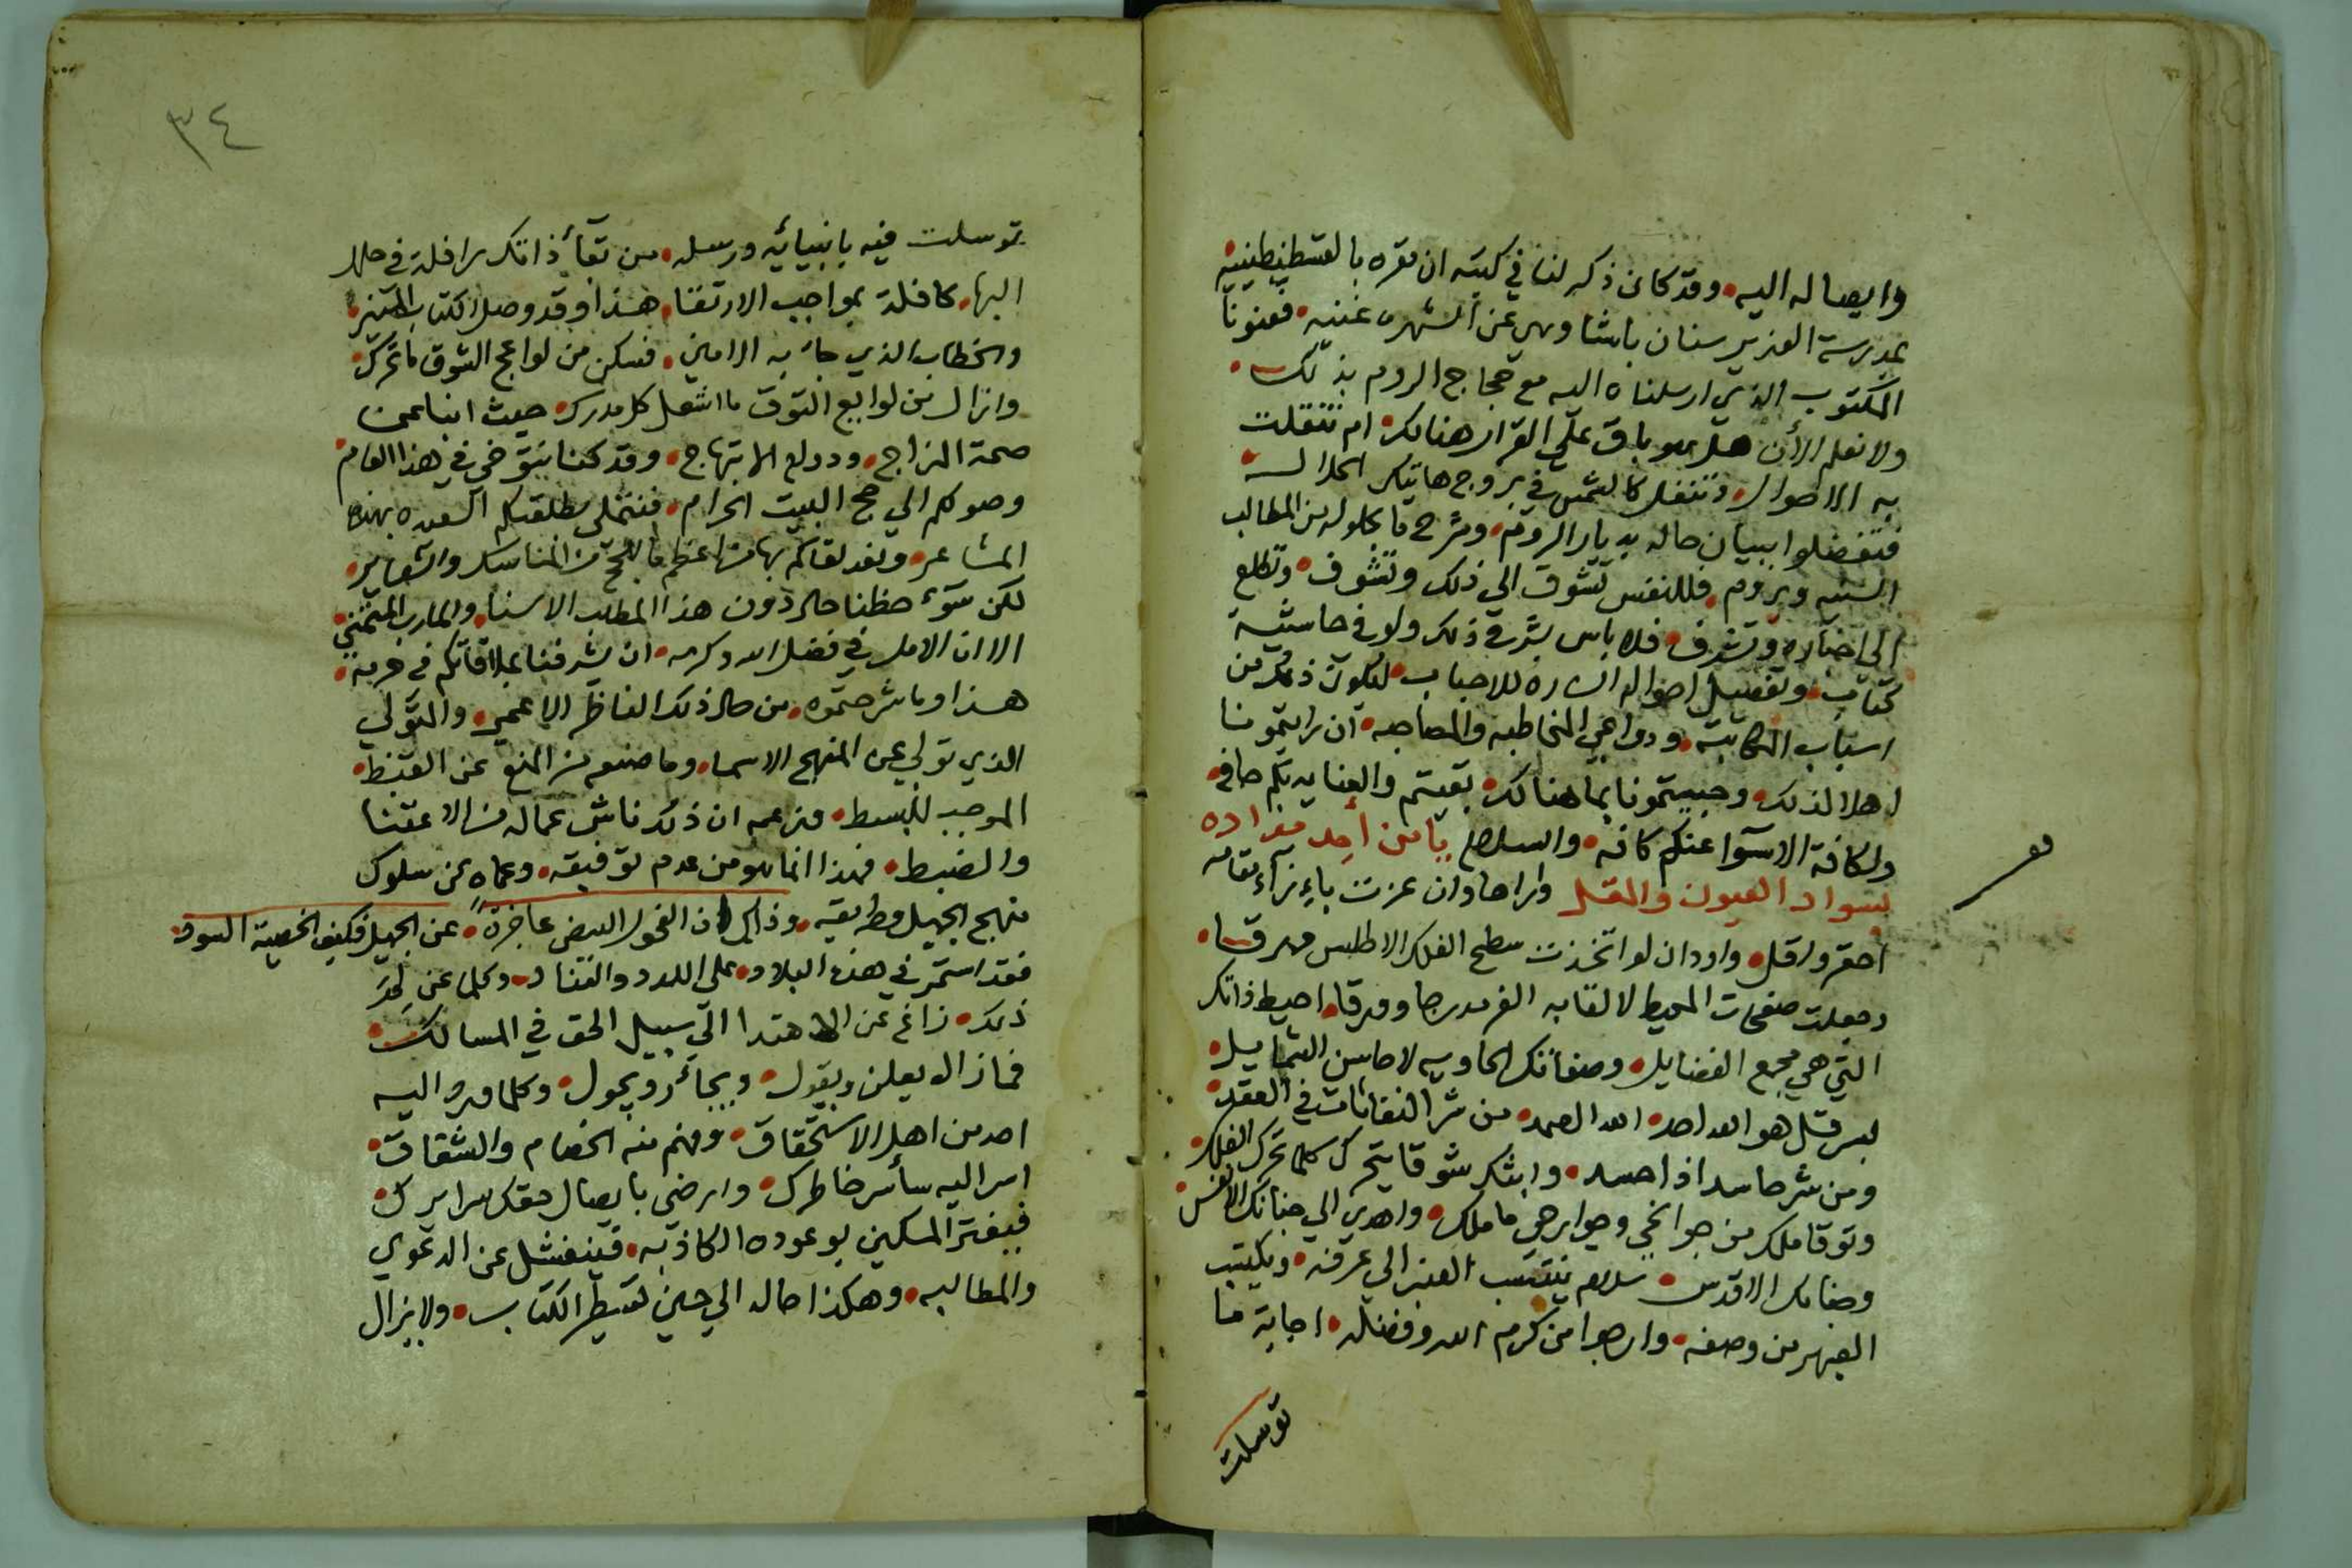 وايصاله اليه وقد كان ذكر لنا في كتبه ان مقره بالقسطنطينيه
بمدرسة الوزير سنان باشا وهي عن الشهره غنيه فعنونا
المكتوب الذي ارسلناه اليه مع حجاج الروم بذلك
ولا نعلم الأن هل هو باق على القرار هنالك ام تنقلت
به الاحوال وتنقل كالشمس في بروج هاتيك
فتفضلوا ببيان حاله بديار الروم وشرح ما يحاوله من المطالب
السنيه ويروم فللنفس تشوق الى ذلك وتشوف وتطلع
الى اخباره وتشرف فلا باس بشرح ذلك ولو في حاشية
كتاب وتفصيل احواله الساره للاحباب ليكون ذلك من
اسباب المكاتبه ودواعي المخاطبه والمصاحبه ان رايتمونا
اهلا لذلك وحبيتمونا بما هنالك بقيتم والعنايه بكم حافه
ولكافة الاسوآ عنكم كافه والسلام يا من أجد مداده
بسواد العيون والمقل واراها وان عزت بإزآء مقامه
احقر واقل واود ان لو اتخذت سطح الفلك الاطلس مهرقا
وجعلت صفحات المحيط لالقابه الغر مدرجا وورقا احيط ذاتك
التي هي مجمع الفضايل وصفاتك الحاويه لاحاسن الشمايل
بسر قل هو الله احد الله الصمد من شر النفاثات في العقد
ومن شر حاسد اذا حسد وابثك شوقا يتحرك كلما تحرك الفلك
وتوقا ملك من جوانحي وجوارحي ما ملك واهدي الى جنابك الانفس
ومقامك الاقدس سلاما ينتسب العنبر الى عرفه ويكتسب
العبهر من وصفه وارجوا من كرم الله وفضله اجابة ما
توسلت
٣٤
توسلت فيه بانبيائه ورسله من بقآء ذاتك رافلة في حلل
البها كافلة بمواجب الارتقا هذا وقد وصل الكتاب
والخطاب الذي جاء به الامين فسكن من لواعج الشوق ما تحرك
وازال من لوايع التوق ما اشتعل كل مدرك حيث انبا عن
صحة المزاج ودوام الابتهاج وقد كنا نتوخى في هذا العام
وصولكم الى حج البيت الحرام فنتملى بطلعتكم السعيده بهذه
المشاعر ونعد لقاكم بها من اعظم من المناسك والشعاير
لكن سوء حظنا حال دون هذا المطلب الاسنا والمارب المتمنى
الا ان الامل في فضل الله وكرمه ان يشرفنا بملاقاتكم في حرمه
هذا وما شرحتموه من حال ذلك الناظر الاعمى والمتولي
الذي تولى عن المنهج الاسما وما صنعه من المنع عن القبض
الموجب للبسط وزعمه ان ذلك ناش عماله من الاعتنا
والضبط فهذا انما هو من عدم توفيقه وعماه عن سلوك
منهج الجميل وطريقه وذاك لان الفحول البيض عاجزة عن الجميل فكيف الخصية السود
فقد استمر في هذه البلاد على اللدد والعناد وكلما عن
ذلك زاغ عن الاهتدا الى سبيل الحق في المسالك
فما زال يعلن ويقول ويجول وكلما ورد اليه
احد من اهل الاستحقاق وفهم منه الخصام والشقاق
اسر اليه سأسر خاطرك وارضى بايصال حقك سرايرك
فيغتر المسكين بوعوده الكاذبه فينفشل عن الدعوى
والمطالبه وهكذا حاله الى حين تسطير الكتاب ولا يزال